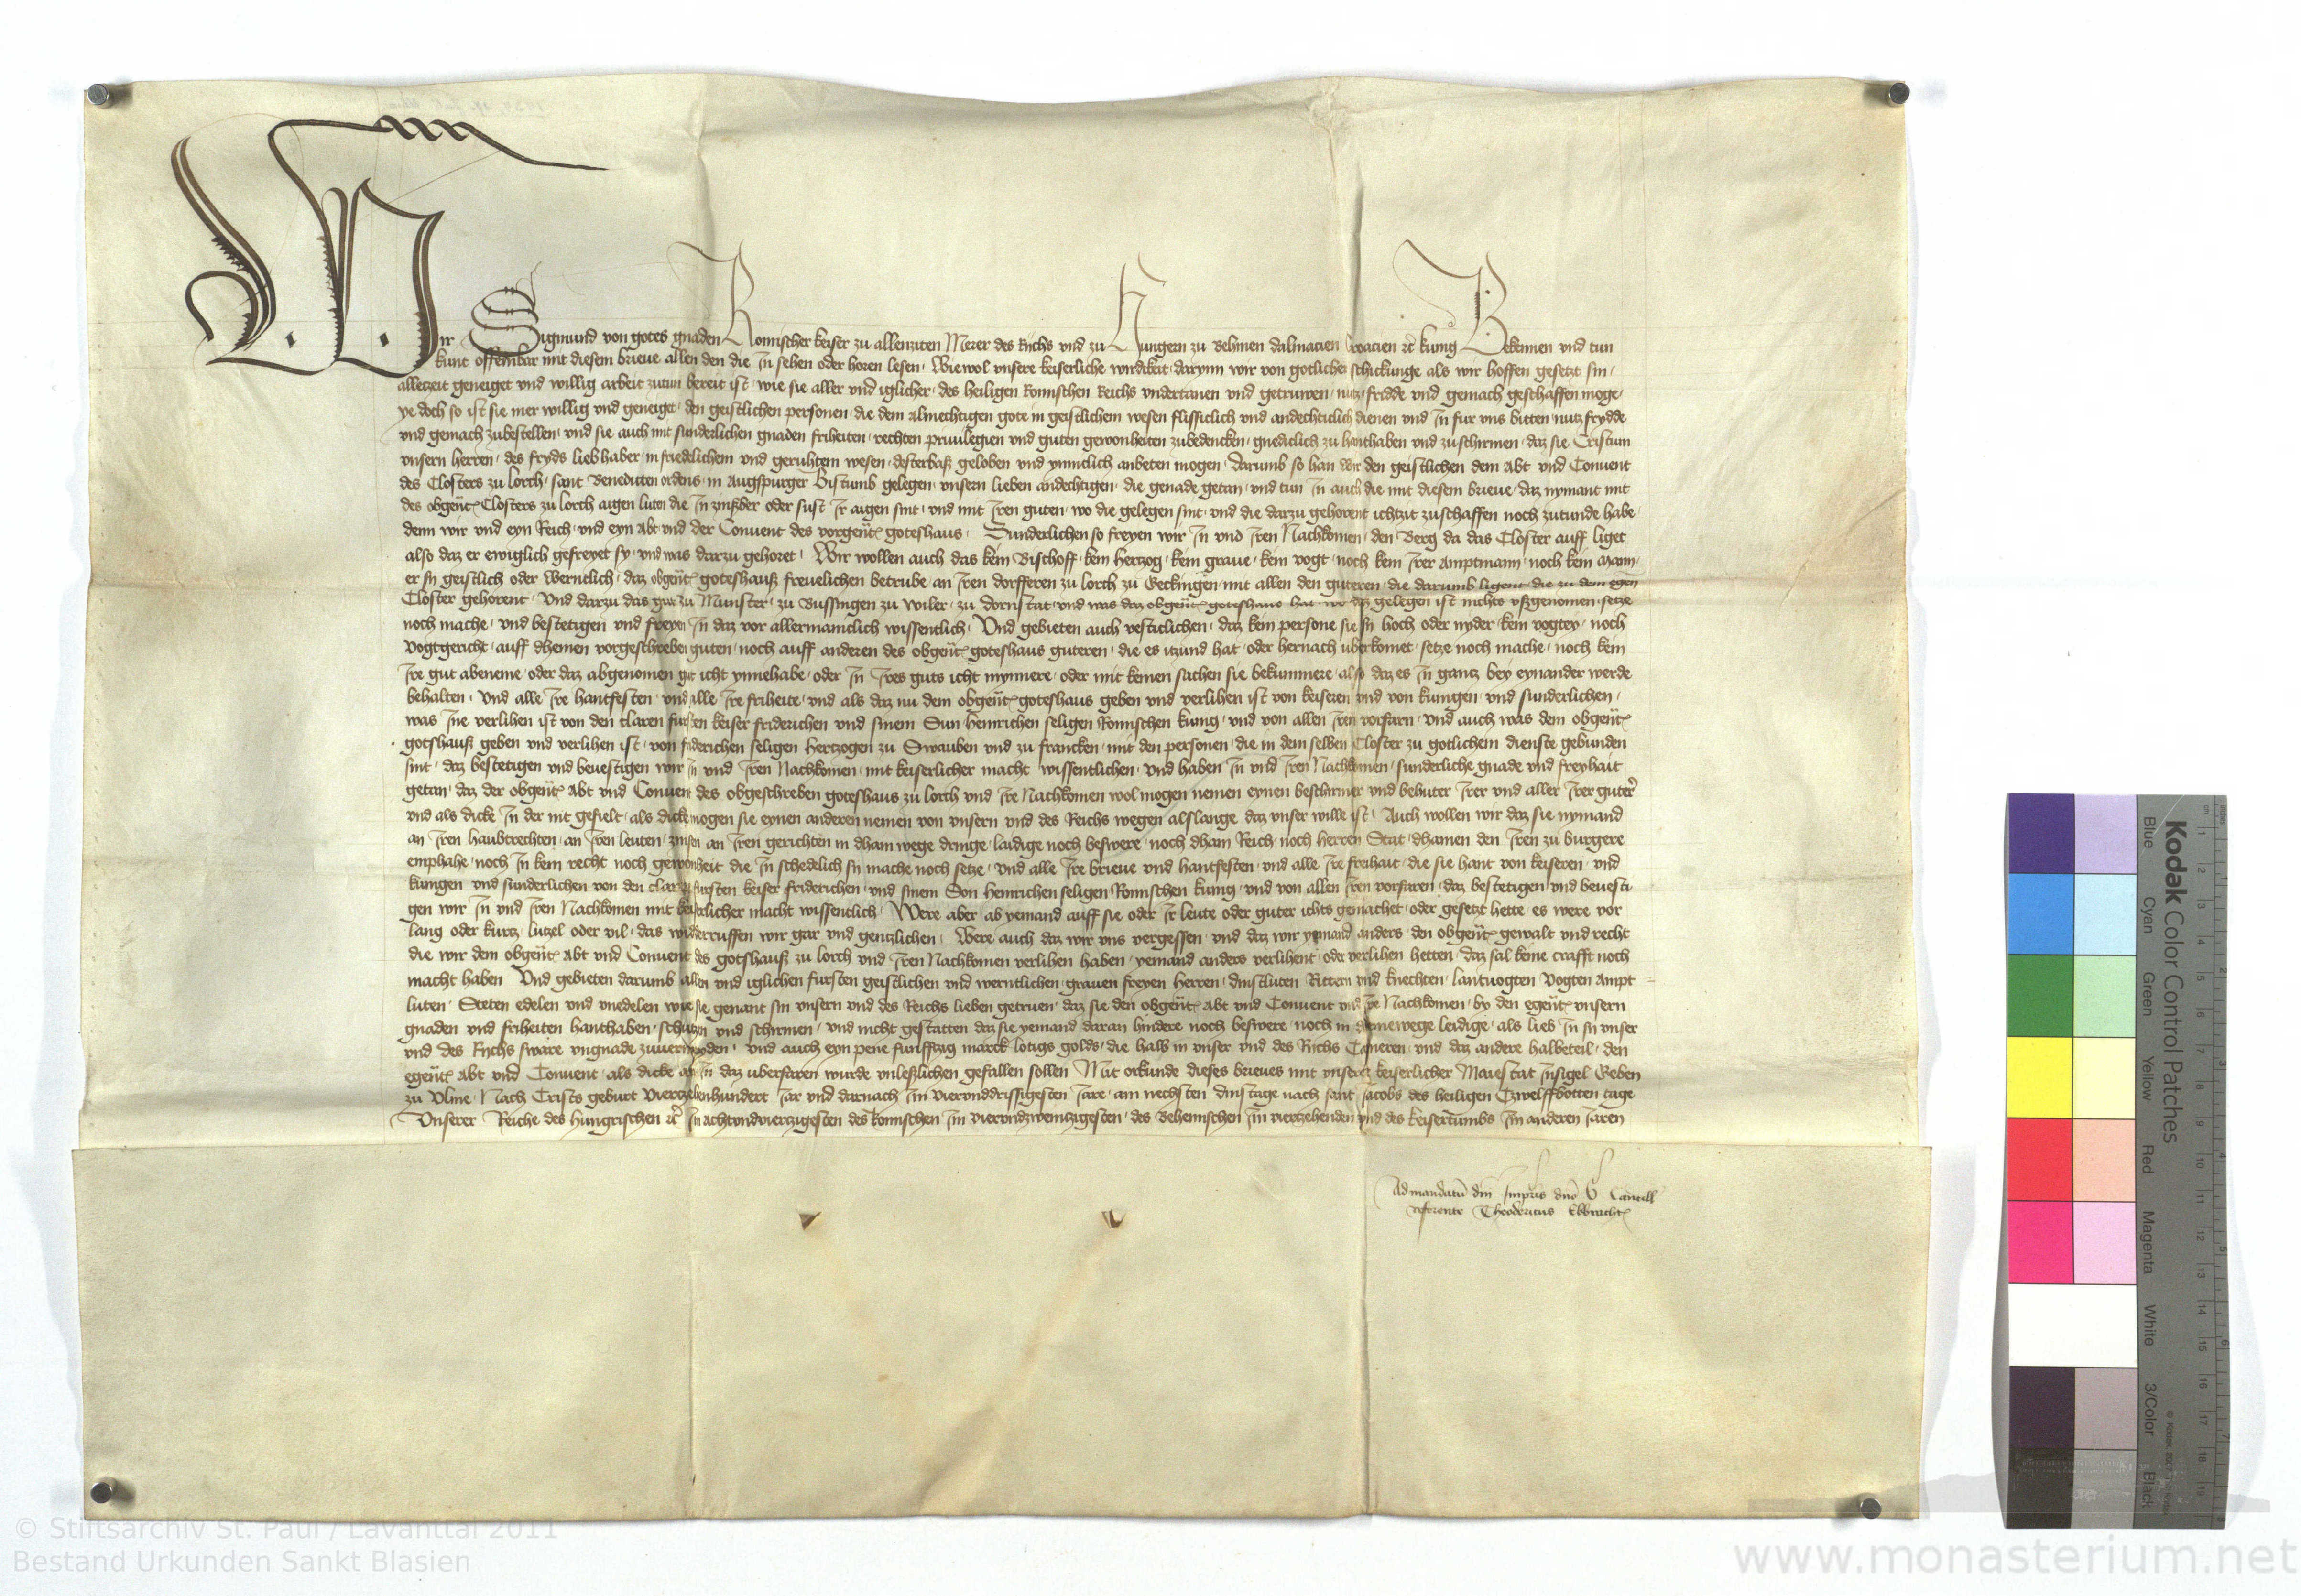 Wir Sigmund von gotes gnaden Romischer keiser zu allenziten Merer des Richs vnd zu Hungern zu Behmen Dalmatien Croatien ꝛc kunig Bekennen vnd tun
kunt offembar mit diesem brieue allen den die In sehen oder horen lesen · Wiewol vnsere keiserliche wirdikeit darynn wir von gotlicher schickunge als wir hoffen gesetzt sin ·
alletzeit geneiget vnd willig arbeit zutun bereit ist · wie sie aller vnd iglicher · des heiligen Romischen Reichs vndertanen vnd getruwen · nutz · fridde vnd gemach geschaffen moge ·
ye doch so ist sie mer willig vnd geneiget · den geistlichen personen · die dem Almechtigen gote in geistlichem wesen flissiclich vnd andechticlich dienen vnd In fur vns bitten · nutz frydde
vnd gemach zubestellen · vnd sie auch mit sunderlichen gnaden friheiten · rechten priuilegien vnd guten gewonheiten zubedencken · gnediclich zu hanthaben vnd zuschirmen · daz sie Cristum
vnsern herren · des fryds liebhaber · in fridelichem vnd geruhtem wesen · desterbaß geloben vnd ynniclich anbeten mogen · Darumb so han wir den geistlichen dem Abt vnd Conuent
des Closters zu Lorch · sant Benedicten ordens · in Augspurger Bistumb gelegen · vnsern lieben andechtigen · die genade getan · vnd tun In auch die mit diesem brieue · daz nymant mit
des obgent Closters zu lorch aigen luten die In zinßber oder sust Ir aigen sint · vnd mit Iren guten · wo die gelegen sint · vnd die darzu gehorent ichtzit zuschaffen noch zutunde habe ·
denn wir vnd eyn Reich · vnd eyn Abt vnd der Conuent des vorgent goteshaus · Sunderlichen so freyen wir In vnd Iren Nachkomen · den Berg da das Closter auff liget
also daz er ewiglich gefreyet sy · vnd was darzu gehoret · Wir wollen auch das kein Bischoff · kein hertzog · kein graue · kein vogt · noch kein Irer Amptmann · noch kein Mann ·
er sy geistlich oder werntlich · daz obgent goteshauß freuelichen betrube an Iren dorfferen zu lorch zu Geckingen mit allen den guteren · die darumb ligent die zu dem egen
Closter gehorent · Vnd darzu das gut zu Munster · zu Bussingen zu wiler · zu dornstat · vnd was daz obgent goteshaus hat wo daz gelegen ist nichts vßgenomen · setze
noch mache · vnd bestetigen vnd freyen In daz vor allermaniclich wissentlich · Vnd gebieten auch vesticlichen · daz kein persone sie sy hoch oder nyder · kein vogtey · noch
vogtgericht · auff dheinen vorgeschreben guten · noch auff anderen des obgent goteshaus guteren · die es itzund hat · oder hernach uberkomet · setze noch mache · noch kein
Ire gut abeneme · oder daz abgenomen gut icht ynnehabe · oder In Ires guts icht mynnere · oder mit keinen sachen sie bekummere · also daz es In gantz bey eynander werde
behalten · Vnd alle Ire hantfesten · vnd alle Ire friheite · vnd als daz nu dem obgent goteshaus geben vnd verlihen ist von keiseren vnd von kunigen · vnd sunderlichen ·
was Ine verlihen ist von den claren fursten keiser friderichen vnd sinem Sun heinrichen seligen Romischen kunig · vnd von allen Iren vorfarn · Vnd auch was dem obgent
gotshauß geben vnd verlihen ist · von friderichen seligen hertzogen zu Swauben vnd zu francken · mit den personen · die in dem selben Closter zu gotlichem dienste gebunden
sint · daz bestetigen vnd beuestigen wir In vnd Iren Nachkomen · mit keiserlicher macht wissentlichen · Vnd haben In vnd Iren Nachkomen · sunderliche gnade vnd freyhait
getan · daz der obgent Abt vnd Conuent des obgeschreben goteshaus zu lorch vnd Ire Nachkomen wol mogen nemen eynen beschirmer vnd behuter Irer vnd aller Irer guter
vnd als dicke In der nit gefielt · als dicke mogen sie eynen anderen nemen von vnsern vnd des Reichs wegen alslange daz vnser wille ist · Auch wollen wir daz sie nymand
an Iren haubtrechten · an Iren leuten · zinsen an Iren gerichten in dhain wege dringe · laidige noch beswere · noch dhain Reich · noch herren Stat · dhainen den Iren zu burgere
emphahe · noch In kein recht noch gewonheit die In schedelich sy mache noch setze · Vnd alle Ire brieue vnd hantfesten · vnd alle Ire freihait · die sie hant von keiseren · vnd
kunigen vnd sunderlichen von den claren fursten keiser friderichen · vnd sinem Son heinrichen seligen Romischen kunig · vnd von allen Iren vorfaren · daz bestetigen vnd beuesti
gen wir In vnd Iren Nachkomen mit keiserlicher macht wissentlich · Were aber ab yemand auff sie oder Ir leute oder guter ichts gemachet · oder gesetzt hette · es were vor
lang oder kurtz · lutzel oder vil · das widerruffen wir gar vnd gentzlichen · Were auch daz wir vns vergessen · vnd daz wir yemand anders · den obgent gewalt vnd recht
die wir dem obgent Abt vnd Conuent des gotshauß zu lorch vnd Iren Nachkomen verlihen haben · yemand anders verlihent · oder verlihen hetten · daz sal keine crafft noch
macht haben Vnd gebieten darumb allen vnd iglichen fursten geistlichen vnd werntlichen · grauen freyen herren · dinstluten Rittern vnd knechten · lantuogten Vogten Ampt
luten · Steten edelen vnd vnedelen wie sie genant sin vnsern vnd des Reichs lieben getruen · daz sie den obgent Abt vnd Conuent vnd Ire Nachkomen · by den egent vnsern
gnaden vnd friheiten hanthaben · schutzen vnd schirmen · vnd nicht gestatten daz sie yemand daran hindere noch beswere · noch in wege leidige · als lieb In sy vnser
vnd des Richs sware vngnade zuuermyden · Vnd auch eyn pene funfftzig marck lotigs golds · die halb in vnser vnd des Richs Cameren · vnd daz andere halbeteil · den
egent Abt vnd Conuent · als dicke In daz uberfaren wurde vnleßlichen gefallen sollen Mit orkunde dieses brieues mit vnserer keiserlicher Maiestat Insigel Geben
zu Vlme · Nach Crists geburt viertzehenhundert Iar vnd darnach Im vierunddrissigesten Iare · am nechsten dinstage nach sant Jacobs des heiligen Tzwelffbotten tage
Vnserer Reiche des hungrischen ꝛc Im achtundviertzigesten des Romischen Im vierundzweintzigesten · des Behemischen Im viertzehenden vnd des keisertumbs Im anderen Iaren
Ad mandatu dni Impris dno G Cancell
referente Theodericus Ebbracht
© Stiftsarchiv St. Paul / Lavanttal 2011
Bestand Urkunden Sankt Blasien
www.monasterium.net
Kodak Color Control Patches
Blue Cyan Green Yellow Red Magenta White 3/Color Black